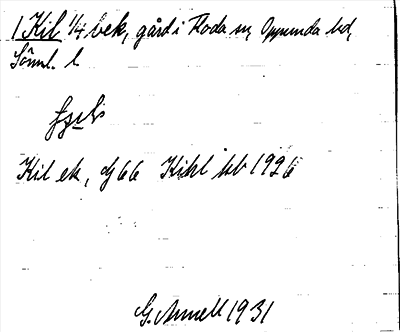 1 Kil 1/4 bek, gård i Floda sn, Oppunda hd,
Sörml. l
Kil ek, dj 66 Kihl kb 1926
G. Annell 1931